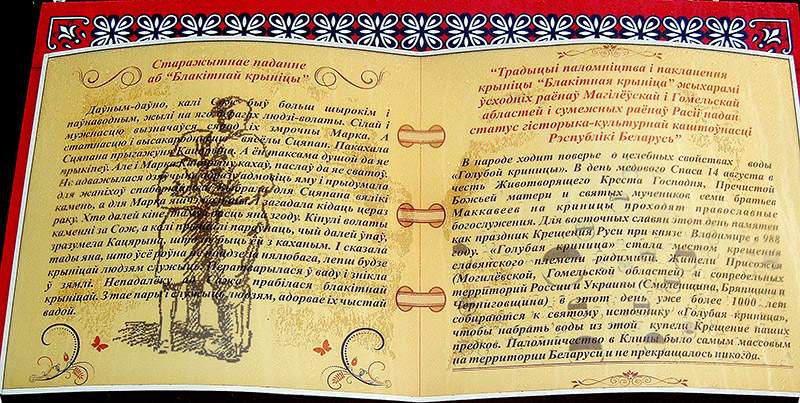 Старажытнае паданне
аб “Блакітнай крыніцы”
Даўным-даўно, калі Сож быў больш шырокім і
паўнаводным, жылі на яго берагах людзі-волаты. Сілай і
мужнасцю вызначаўся сярод іх змрочны Марка. А
статнасцю і высакароднасцю – вясёлы Сцяпан. Пакахала
Сцяпана прыгажуня Кацярына. А ён таксама душой да яе
прыкіпеў. Але і Марка Кацярыну кахаў, паслаў да яе сватоў.
Не адважылася дзяўчына адразу адмовіць яму і прыдумала
для жаніхоў спаборніцтва. Выбрала для Сцяпана вялікі
камень, а для Марка яшчэ большы і загадала кідаць цераз
раку. Хто далей кіне, таму і дасць яна згоду. Кінулі волаты
каменні за Сож, а калі прыйшлі паглядзець, чый далей ўпаў,
зразумела Кацярына, што не быць ёй з каханым. І сказала
тады яна, што ўсё роўна не пойдзе за нялюбага, лепш будзе
крыніцай людзям служыць. Ператварылася ў ваду і знікла
ў зямлі. Непадалёку ад Сажа прабілася блакітнай
крыніцай. З тае пары і служыць людзям, адорвае іх чыстай
вадой.
“Традыцыі паломніцтва і пакланення
крыніцы “Блакітная крыніца” жыхарамі
ўсходніх раёнаў Магілёўскай і Гомельскай
абласцей і сумежных раёнаў Расіі надай
статус гісторыка-культурнай каштоўнасці
Рэспублікі Беларусь”
В народе ходит поверье о целебных свойствах воды
«Голубой криницы». В день медового Спаса 14 августа в
честь Животворящего Креста Господня, Пречистой
Божьей матери и святых мучеников семи братьев
Маккавеев на кринице проходят православные
богослужения. Для восточных славян этот день памятен
как праздник Крещения Руси при князе Владимире в 988
году. «Голубая криница» стала местом крещения
славянского племени радимичей. Жители Присожья
(Могилёвской, Гомельской областей) и сопредельных
территорий России и Украины (Смоленщина, Брянщина и
Черниговщина) в этот день уже более 1000 лет
собираются к святому источнику «Голубая криница»,
чтобы набрать воды из этой купели Крещение наших
предков. Паломничество в Клины было самым массовым
на территории Беларуси и не прекращалось никогда.